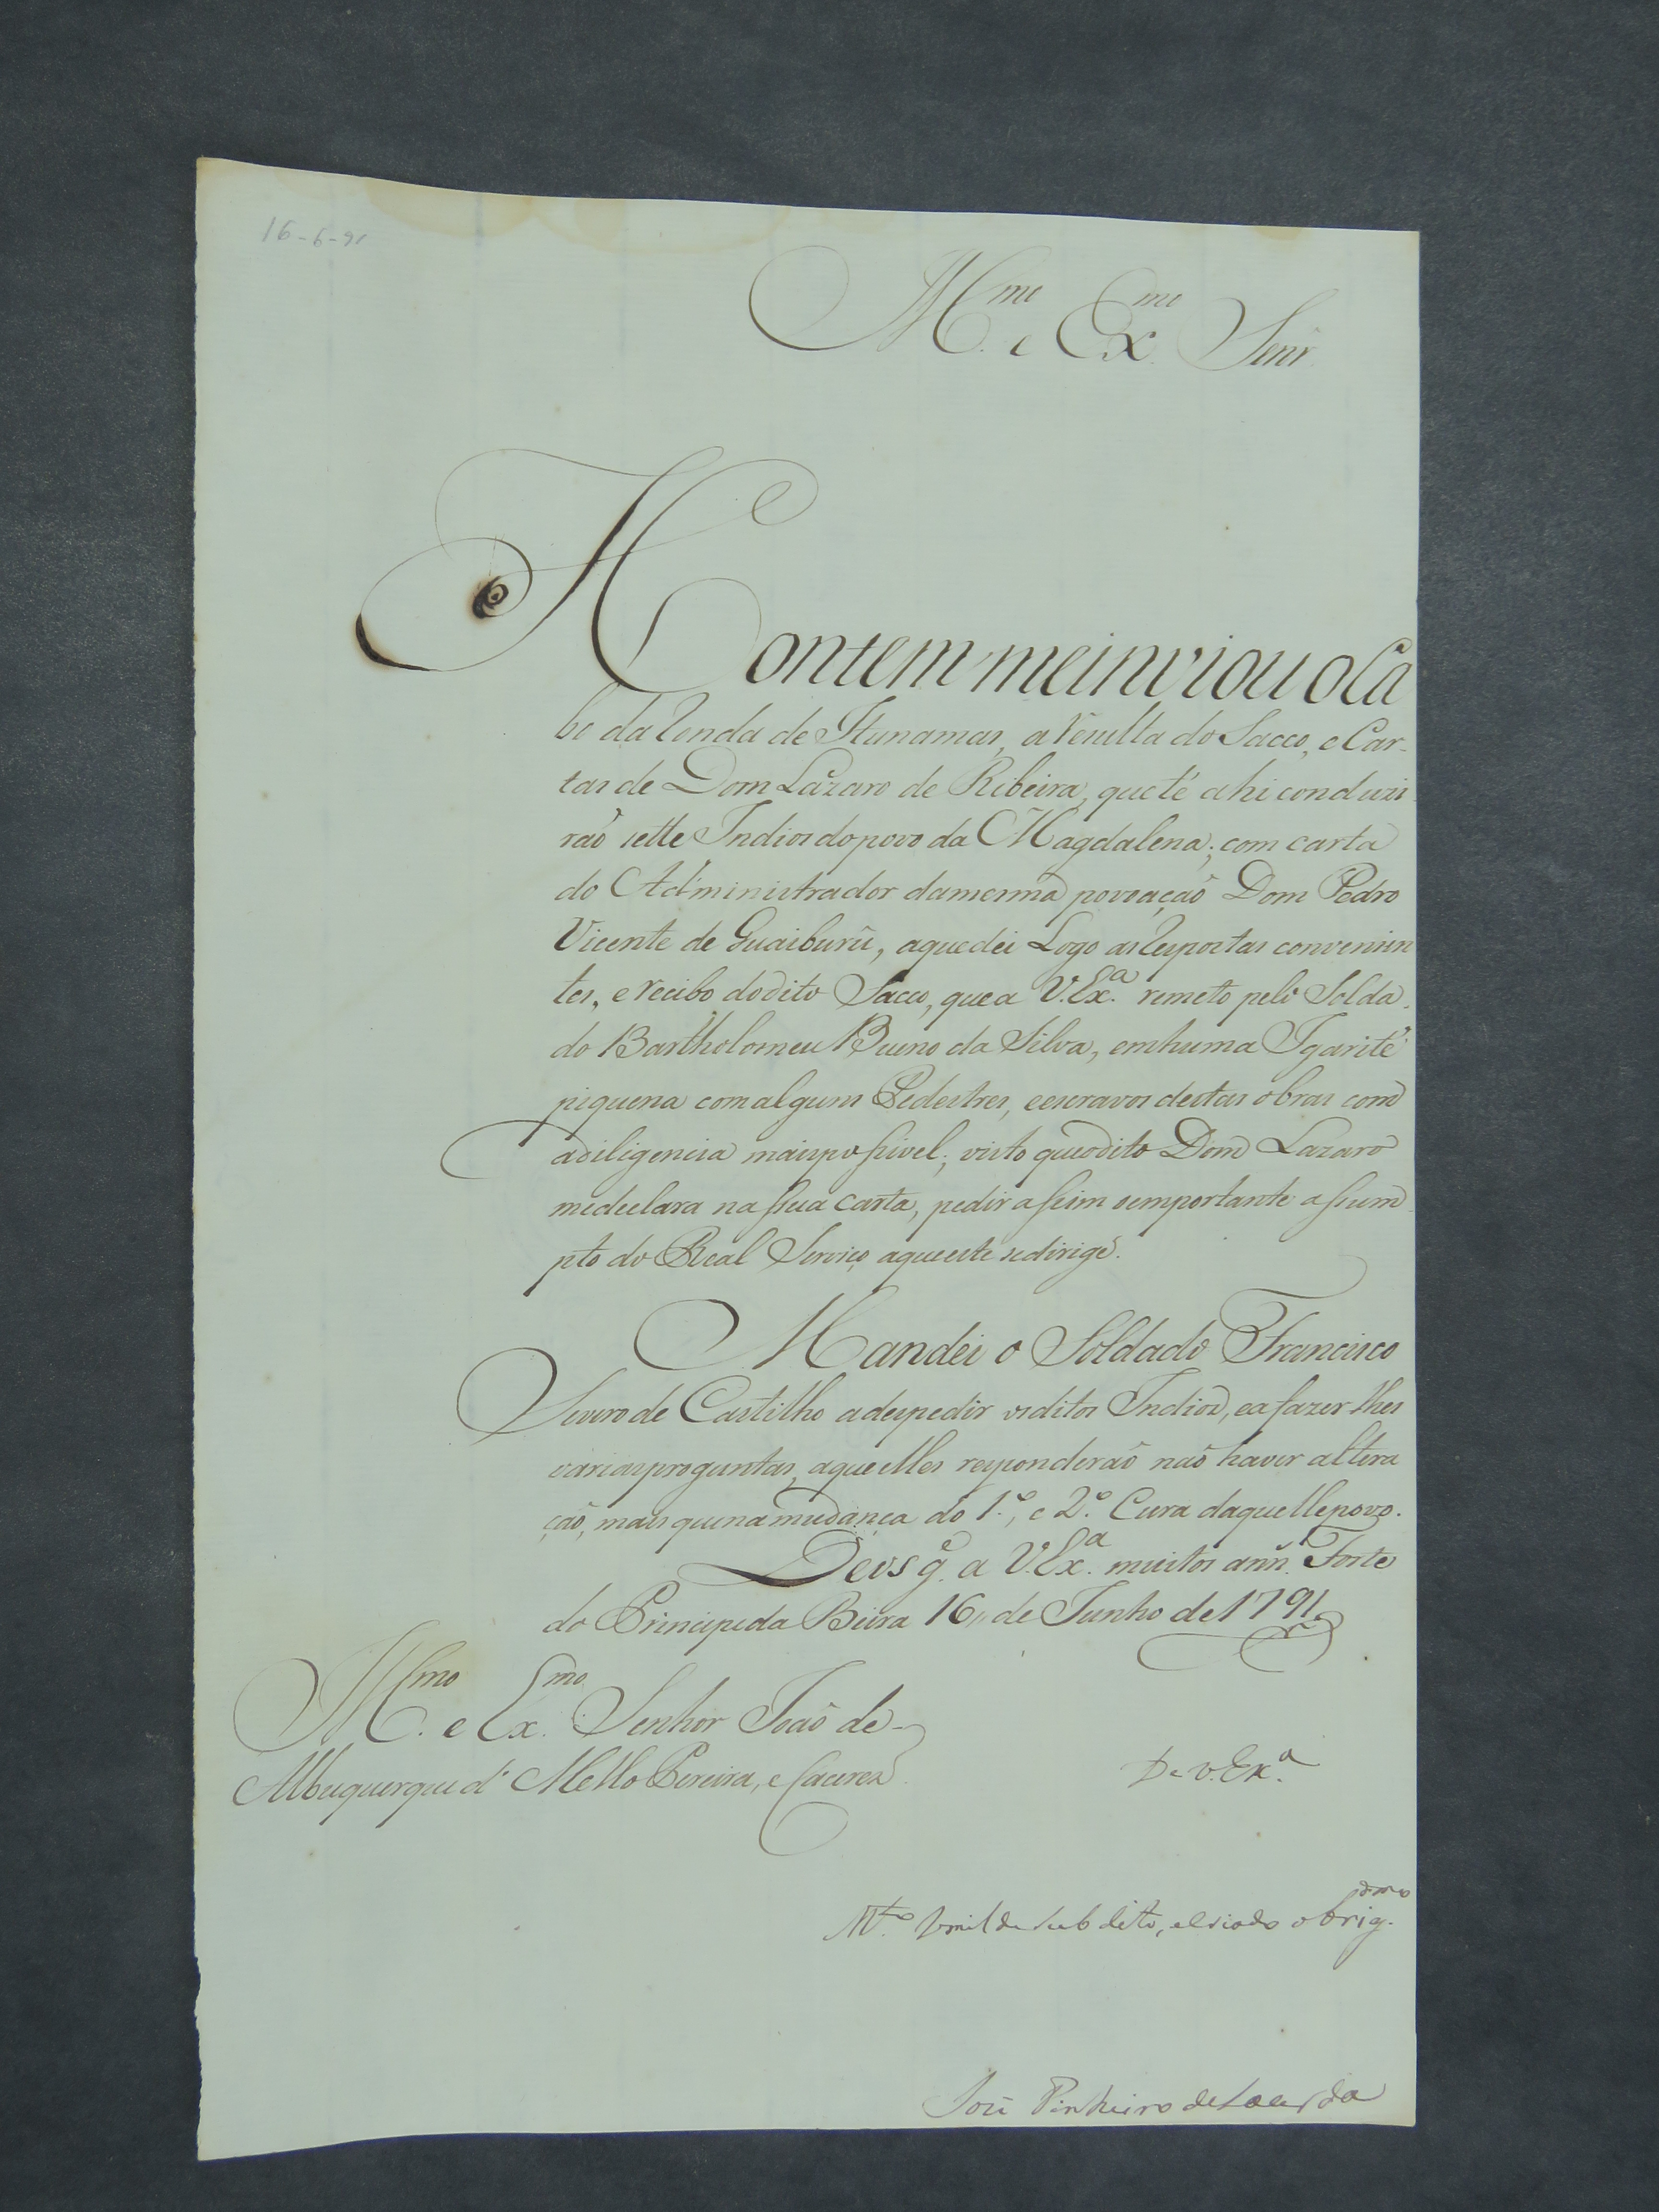 16-6-91
Ill.mo e Ex.mo Senr.
Hontem me inviou o Ca
bo da Ronda de Itunamas, a Resulta do Sacco, e Car-
tas de Dom Lazaro de Ribeira, que té ahi conduzi
raõ sette Indios do povo da Magdalena; com carta
do Administrador da mesma povoaçaõ Dom Pedro
Vicente de Guaiburû, a que dei Logo as Respostas convenien
tes, e recibo do dito Sacco, que a V. Ex.a remeto pelo Solda.
do Bartholomeu Bueno da Silva, em huma Igarité
piquena com alguns Pedestres, e escravos destas obras com
a diligencia mais possivel; visto que o dito Dom Lazaro
me declara na sua carta, pedir assim o emportante assum
pto do Real Serviço a que este se dirige.
Mandei o Soldado Francisco
Severo de Castilho a despedir os ditos Indios, e a fazer lhes
varias proguntas, a que elles responderaõ naõ haver altera
çaõ, mais que na mudança do 1.º, e 2.º Cura daquelle povo.
Deos g.e a V. Ex.a muitos ann.s Forte
do Principe da Beira 16 de Junho de 1791
Ill.mo e Ex.mo Senhor Joaõ de
Albuquerque d' Mello Pereira, e Caceres
De V. Ex.a
M.to Umilde Subdito, e criado obrig.dmo
Jozé Pinheiro de Lacerda